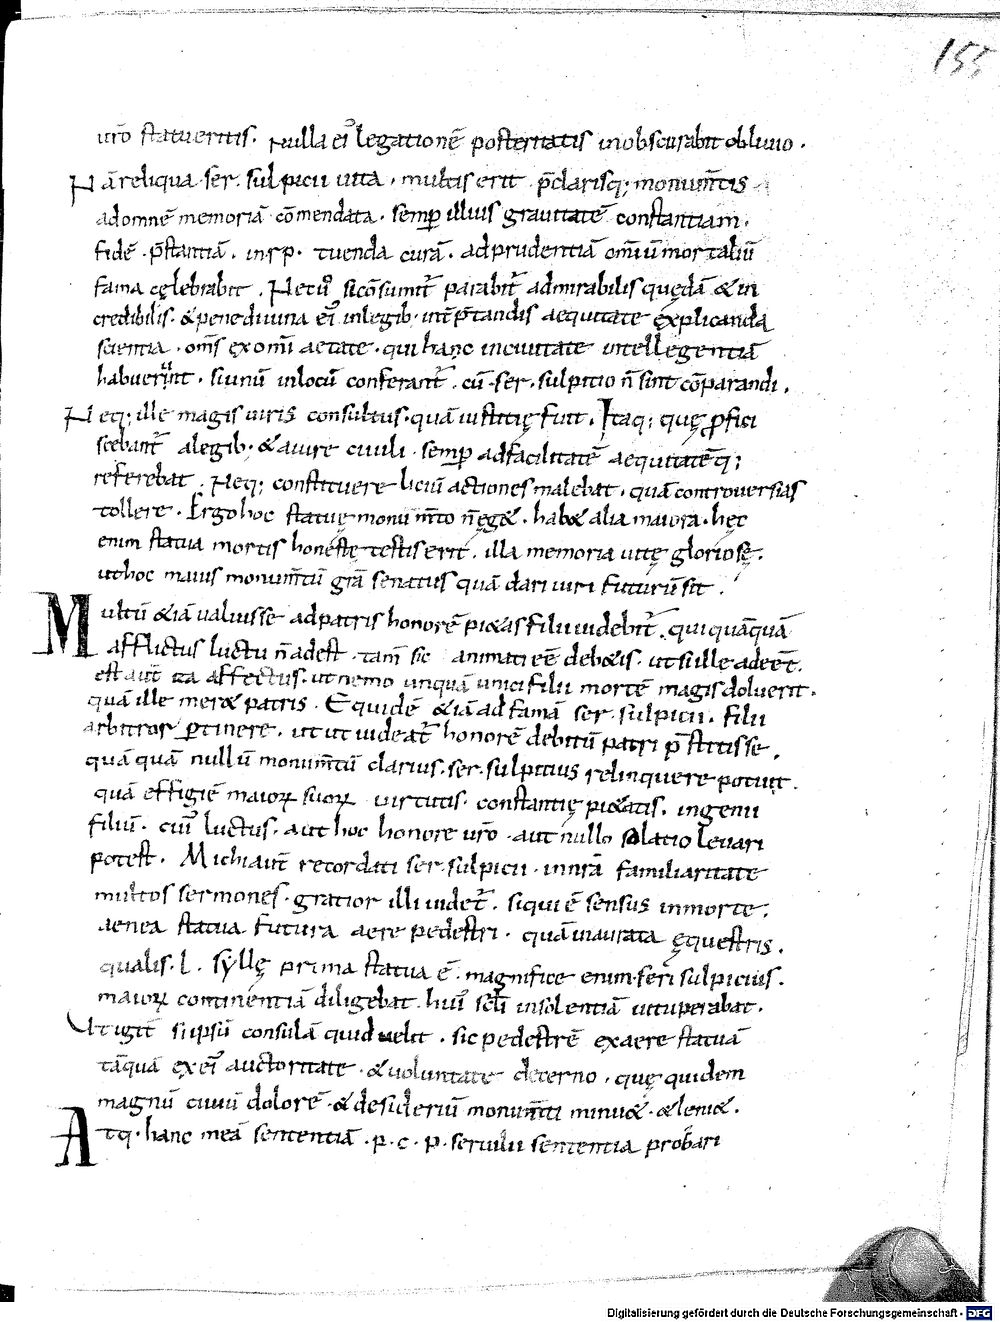 155
uro᷒ statueritis. Nulla ei᷒ legationē posteritatis inobscurabit obliuio.
Nā reliqua ser. sulpicii uita. multis erit p̄clarisq; monum̄tis
adomnē memoriā cōmendata. semp̱ illius grauitatē constantiam.
fidē. p̄stantiā. inrp. tuenda curā. adprudentiā om̄iū mortaliū
fama cęlebrabit. Netū᷒ sicōsumit᷒ parabit᷒ admirabilis quędā & in
credibilis. & pene diuina ei᷒ inlegib; int̄p̄tandis aequitate explicanda
scientia. om̄s exom̄i aetate. qui hanc inciuitate intellegentiā
habuerunt. siunū inlocū conferant᷒. cū ser. sulpitio n̄ sint cōparandi.
Neq; ille magis iuris consultus. quā iustitię fuit. Itaq; quę ꝓfici
scebant᷒ alegib; & aiure ciuili. semp̱ adfacilitatē aequitatēq;
referebat. Neq; constituere liciū actiones malebat. quā controuersias
tollere. Ergo hoc statuę monum̄to n̄ eg&. hab& alia maiora. hęc
enim statua mortis honestę testis erit. illa memoria uitę gloriosę.
ut hoc maius monum̄tū grā senatus quā clari uiri futurū sit.
Multū &iā ualuisse adpatris honorē pi&as filii uidebit᷒. qui quāquā
afflictus luctu n̄ adest. tam̄ sic animati eē deb&is. ut si ille adeēt.
est aut̄ ita affectus. ut nemo unquā unici filii mortē magis doluerit.
quā ille mer& patris. Equidē &iā ad famā ser. sulpicii. filii
arbitror ꝑtinere. ut ut uideat᷒ honorē debitū patri p̄stitisse.
quā quā nullū monum̄tū clarius. ser. sulpitius relinquere potuit.
quā effigiē maioꝝ suoꝝ uirtutis. constantię pi&atis. ingenii
filiū. cui᷒ luctus. aut hoc honore uro᷒. aut nullo solatio leuari
potest. Michi aut̄ recordati ser. sulpicii. innr̄ā familiaritate
multos sermones. gratior illi uidet᷒. siqui ē sensus inmorte.
aenea statua futura aere pedestri. quā inaurata ęquestris.
qualis. l. syllę prima statua ē. magnifice enim. seri sulpicius.
maioꝝ continentiā diligebat. hui᷒ sc̄li insolentiā uituperabat.
Vt igit᷒ si ipsū consulā quid uelit. sic pedestrē exaere statuā
tāquā exei᷒ auctoritate. & uoluntate decerno. quę quidem
magnū ciuiū dolorē. & desideriū monum̄ti minu&. & leni&.
Atq. hanc meā sententiā. p. c. p. seruilii sententia probari
Digitalisierung gefördert durch die Deutsche Forschungsgemeinschaft - DFG